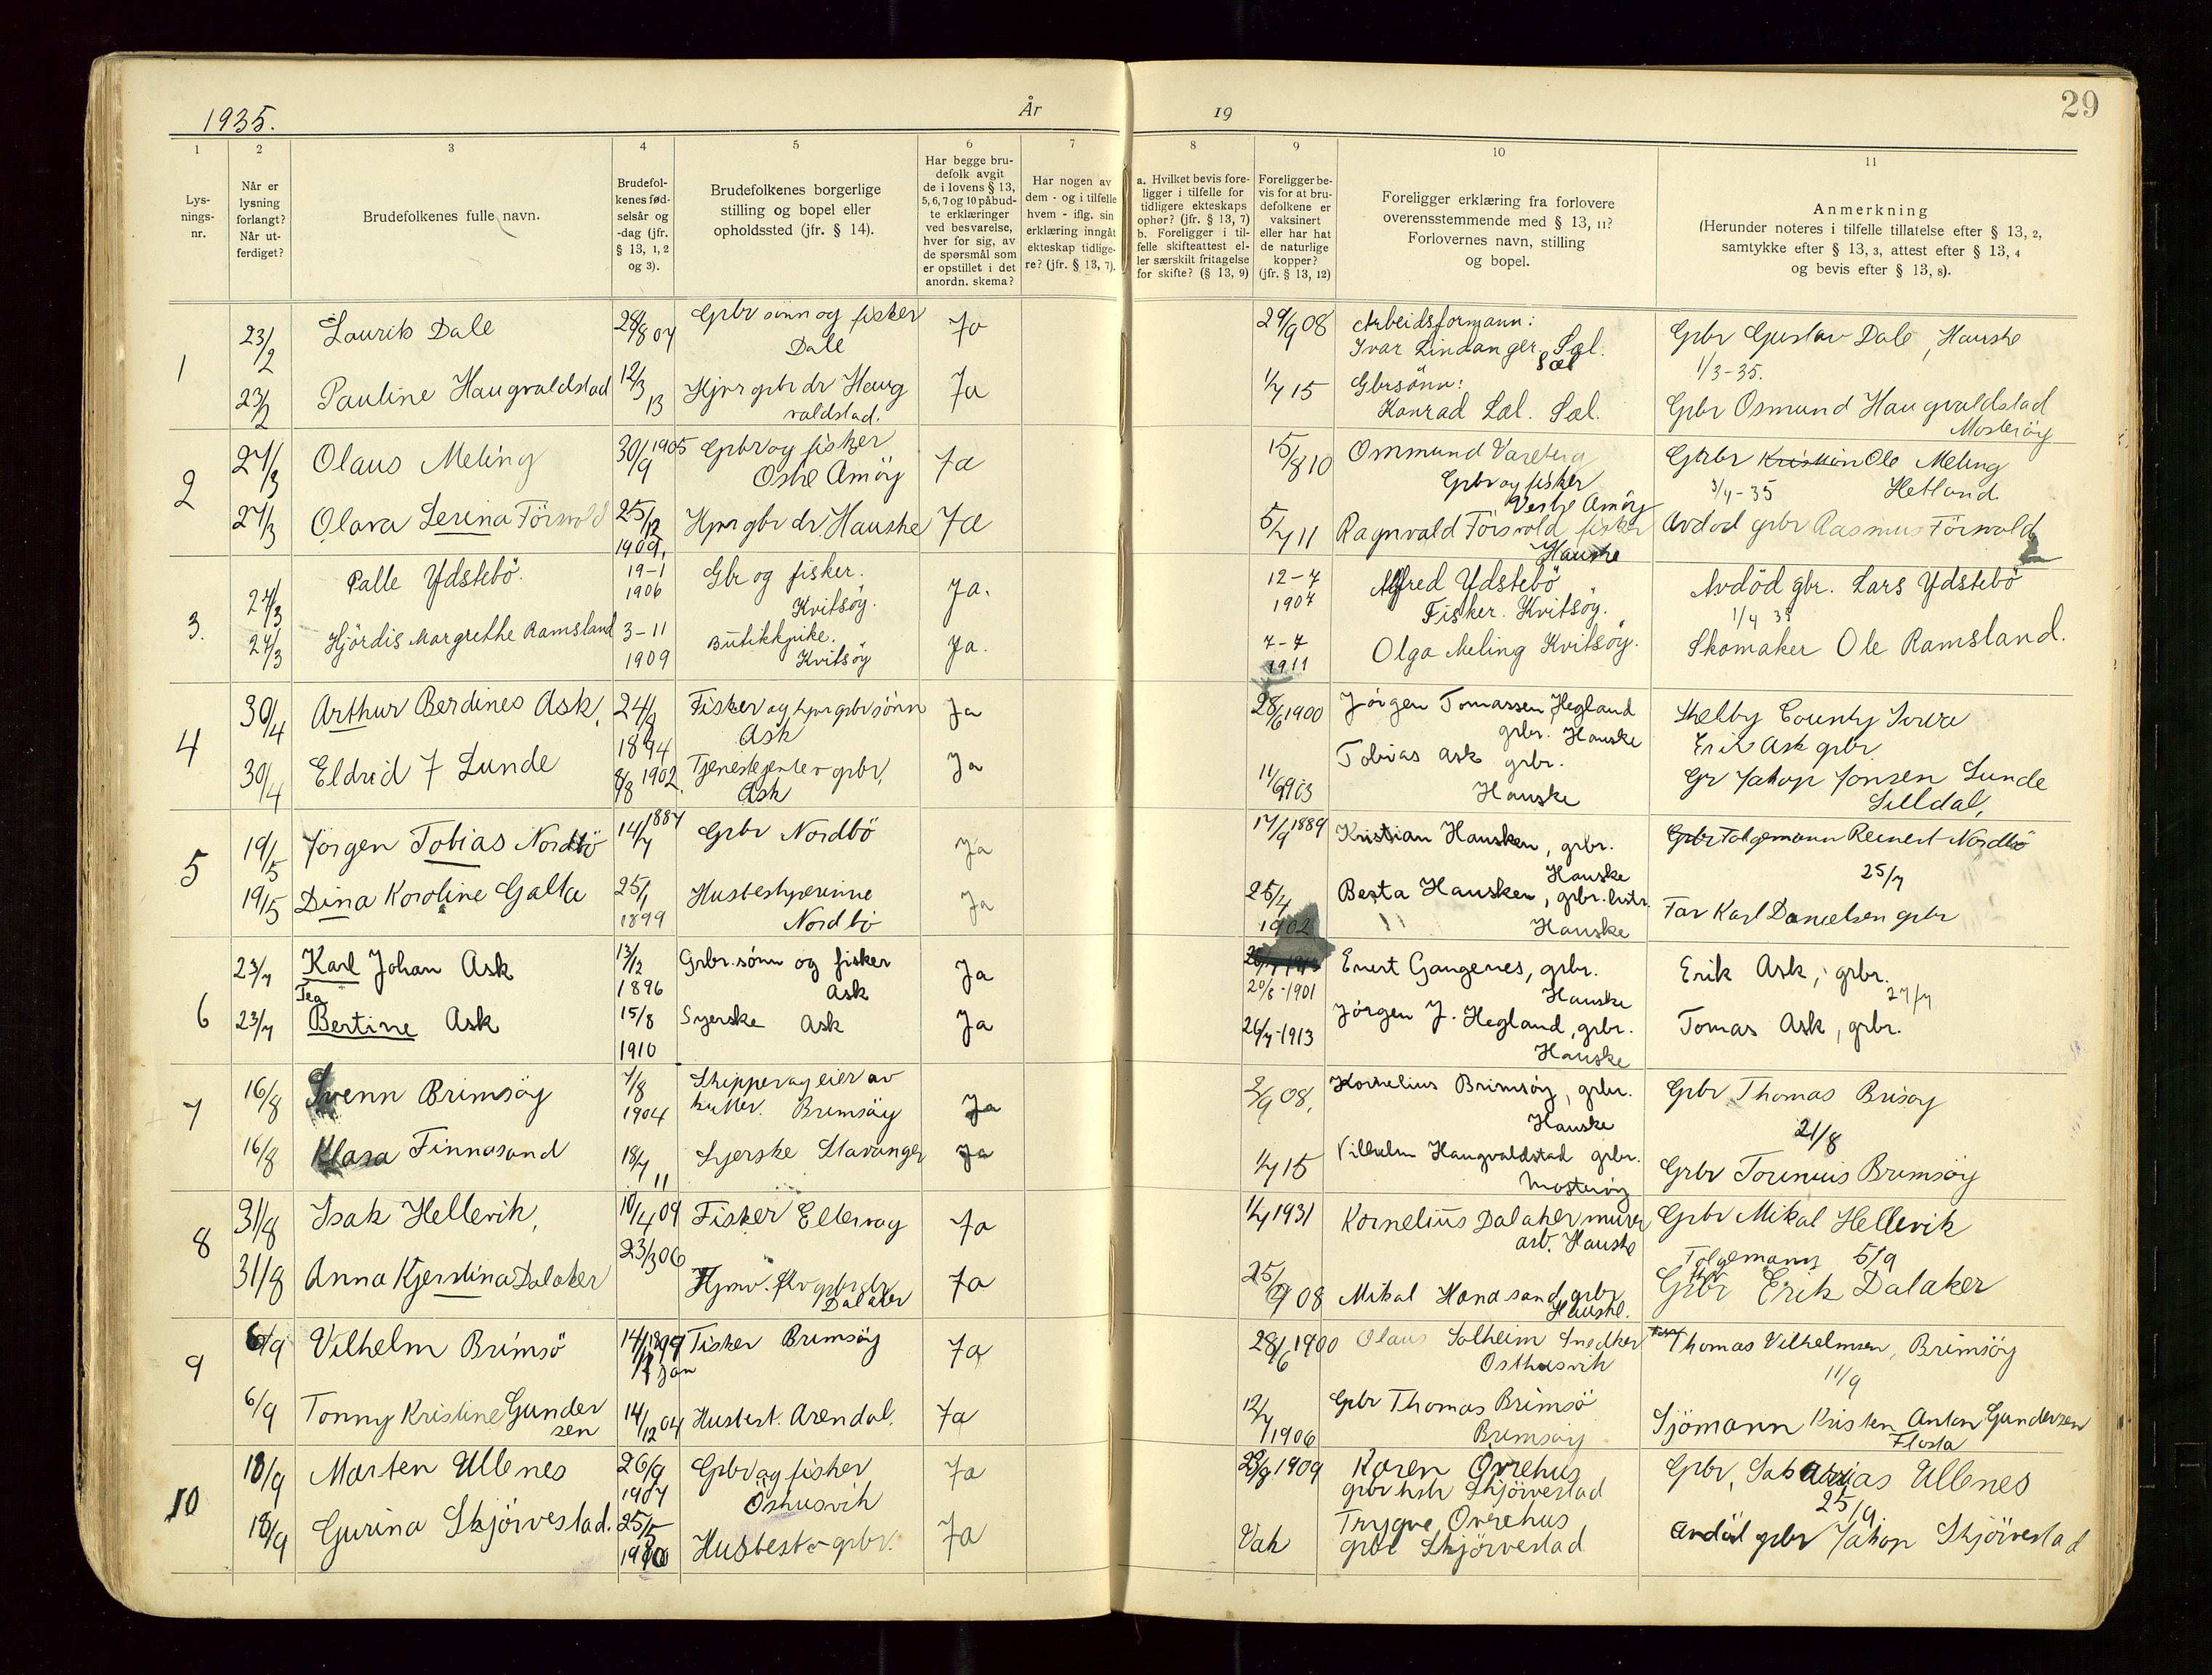 1935.
År
19
29
1
2
3
4
5
6
7
8
9
10
11
Lys-
nings-
nr.
Når er
lysning
forlangt?
Når ut-
ferdiget?
Brudefolkenes fulle navn.
Brudefol-
kenes fød-
selsår og
-dag (jfr.
§ 13, 1, 2
og 3).
Brudefolkenes borgerlige
stilling og bopel eller
opholdssted (jfr. § 14).
Har begge bru-
defolk avgit
de i lovens § 13,
5, 6, 7 og 10 påbud-
te erklæringer
ved besvarelse,
hver for sig, av
de spørsmål som
er opstillet i det
anordn. skema?
Har nogen av
dem - og i tilfelle
hvem - iflg. sin
erklæring inngåt
ekteskap tidlige-
re? (jfr. § 13, 7).
a. Hvilket bevis fore-
ligger i tilfelle for
tidligere ekteskaps
ophør? (jfr. § 13, 7)
b. Foreligger i til-
felle skifteattest el-
ler særskilt fritagelse
for skifte? (§ 13, 9)
Foreligger be-
vis for at bru-
defolkene er
vaksinert
eller har hat
de naturlige
kopper?
(jfr. § 13, 12)
Foreligger erklæring fra forlovere
overensstemmende med § 13, 11?
Forlovernes navn, stilling
og bopel.
Anmerkning
(Herunder noteres i tilfelle tillatelse efter § 13, 2,
samtykke efter § 13, 3, attest efter § 13, 4
og bevis efter § 13, 8).
1
23/2
Laurits Dale
28/8 07
Grbr sønn og fisker
Dale
Ja
29/9 08
Arbeidsformann:
Ivar Lindanger, Sæl.
Grbr Gustav Dale, Hauske
1/3-35.
23/2
Pauline Haugvaldstad
12/3 13
Hjvr grbr dr Haug
valdstad.
Ja
1/7 15
Gbrsönn:
Konrad Sæl. Sæl.
Grbr Osmund Haugvaldstad
Mosterøy
2
27/3
Olaus Meling
30/9 1905
Grbr og fisker
Ostre Amöy
Ja
15/8 10
Ommund Vareberg
Grbr og fisker
Vestre Amöy
Grbr Kristian Ole Meling
3/4-35 Hetland
27/3
Olava Serina Försvold
25/12
1909.
Hjvr gbr dr. Hauske
Ja
5/7 11
Ragnvald Försvold fisker
Hauske
Avdød grbr Rasmus Försvold
3.
27/3
Palle Ydstebö.
19-1
1906
Gbr og fisker.
Kvitsöy.
Ja.
12-7
1907
Alfred Ydstebö
Fisker. Kvitsöy.
Avdöd gbr. Lars Ydstebö
1/4 35
27/3
Hjördis Margrethe Ramsland
3-11
1909
Butikkpike.
Kvitsöy
Ja.
7-7
1911
Olga Meling Kvitsöy.
Skomaker Ole Ramsland.
4
30/4
Arthur Berdines Ask,
1894
Fisker og hjvr grbr sönn
Ask
Ja
28/6 1900
Jørgen Tomassen Hegland
grbr. Hauske
Shelby County Iowa
Erik Ask grbr
30/4
Eldrid J Lunde
8/8 1902.
Tjenestejente v grbr,
Ask
Ja
11/6 1903
Tobias Ask grbr.
Hauske
Gr Jakop Jonsen Lunde
5
19/5
Jörgen Tobias Nordbö
14/7 1887
Grbr Nordbö
Ja
17/9 1889
Kristian Hausken, grbr.
Hauske
Grbr Folgemann Reinert Nordbö
25/7
19/5
Dina Karoline Galta
25/1
1899
Husbestyrerinne
Nordbö
Ja
25/4
1902
Berta Hausken, grbr.kstr.
Hauske
Far Karl Danielsen grbr
6
23/7
Karl Johan Ask
13/12
1896
Grbr.sønn og fisker
Ask
Ja
20/8-1901
Enert Gangenes, grbr.
Hauske
Erik Ask, grbr.
27/7
23/7
Tea
Bertine Ask
15/8
1910
Syerske Ask
Ja
26/7-1913
Jørgen J. Hegland, grbr.
Hauske
Tomas Ask, grbr.
7
16/8
Svenn Brimsöy
7/8
1904
Skipper og eier av
kutter. Brimsöy
Ja
2/9 08,
Kornelius Brimsöy, grbr.
Hauske
Grbr Thomas Brisoy
21/8
16/8
Klara Finnasand
18/7 11
Syerske Stavanger
Ja
1/7 15
Vilhelm Haugvaldstad grbr.
Mosterøy
Grbr Tounuis Brimsöy
8
31/8
Isak Hellevik,
10/4 09
Fisker Ellevag
Ja
1/7 1931
Kornelius Dalaker murer
arb. Hauske
Grbr Mikal Hellevik
Folgemann 5/9
31/8
Anna Kjerstina Dalaker
23/3 06
Hjmv. grbr dr
Dalaker
Ja
25/9 08
Mikal Hanasand grbr
Hauske.
Grbr Erik Dalaker
9
6/9
Vilhelm Brimsö
14/1 1899
Jan
Fisker Brimsöy
Ja
28/6 1900
Olaus Solheim Snedker
Osthusvik
Thomas Vilhelmsen, Brimsöy
11/9
6/9
Tonny Kristine Gunder
sen
14/12 04
Husbest. Arendal.
Ja
12/7 1906
Grbr Thomas Brimsö
Brimsöy
Sjömann Kristen Anton Gundersen
Flosta
10
18/9
Marten Ullenes
26/9
1907
Grbr og fisher
Öshusvik
Ja
23/9 1909
Karen Övrehus
grbr kstr Skjörvestad
Grbr, Ullenes
25/9.
18/9
Gurina Skjörvestad.
25/5
Husbest v grbr.
Ja
Vak
Trygve Övrehus
grbr Skjörvestad
Avdöd grbr Jakop Skjörvestad